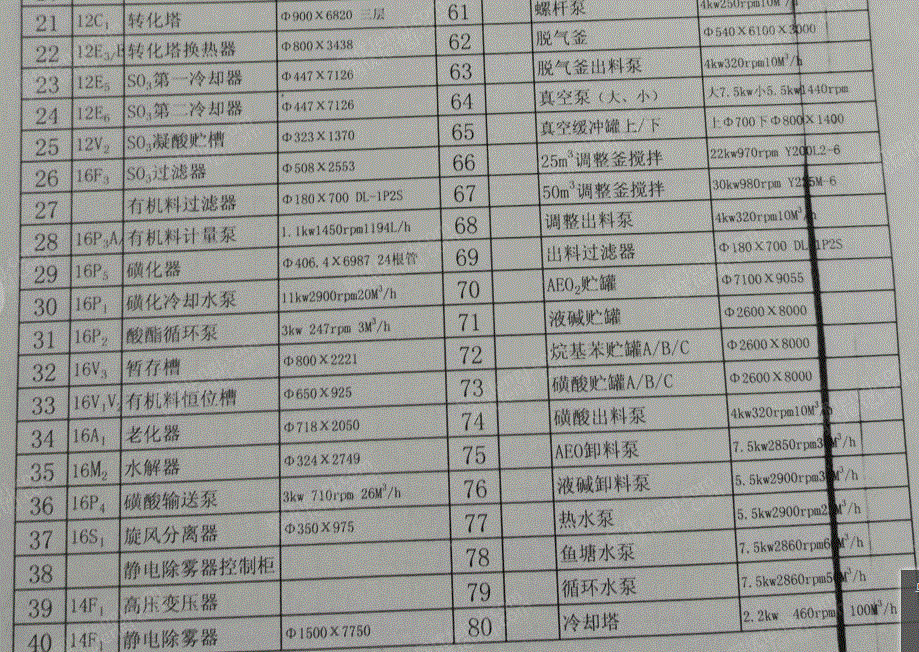 21 12C₁ 转化塔 Φ900X6820 三层 61 螺杆泵 4kw250rpm10M³/h
22 12E₃/E 转化塔换热器 Φ800X3438 62 脱气釜 Φ540X6100X3000
23 12E₅ SO₃第一冷却器 Φ447X7126 63 脱气釜出料泵 4kw320rpm10M³/h
24 12E₆ SO₃第二冷却器 Φ447X7126 64 真空泵（大、小） 大7.5kw小5.5kw1440rpm
25 12V₂ SO₃凝酸贮槽 Φ323X1370 65 真空缓冲罐上/下 上Φ700下Φ800X1400
26 16F₃ SO₃过滤器 Φ508X2553 66 25m³调整釜搅拌 22kw970rpm Y200L2-6
27 有机料过滤器 Φ180X700 DL-1P2S 67 50m³调整釜搅拌 30kw980rpm Y225M-6
28 16P₃A/ 有机料计量泵 1.1kw1450rpm1194L/h 68 调整出料泵 4kw320rpm10M³/h
29 16P₅ 磺化器 Φ406.4X6987 24根管 69 出料过滤器 Φ180X700 DL-1P2S
30 16P₁ 磺化冷却水泵 11kw2900rpm20M³/h 70 AEO₂贮罐 Φ7100X9055
31 16P₂ 酸酯循环泵 3kw 247rpm 3M³/h 71 液碱贮罐 Φ2600X8000
32 16V₃ 暂存槽 Φ800X2221 72 烷基苯贮罐A/B/C Φ2600X8000
33 16V₁V₂ 有机料恒位槽 Φ650X925 73 磺酸贮罐A/B/C Φ2600X8000
34 16A₁ 老化器 Φ718X2050 74 磺酸出料泵 4kw320rpm10M³/h
35 16M₂ 水解器 Φ324X2749 75 AEO卸料泵 7.5kw2850rpm M³/h
36 16P₄ 磺酸输送泵 3kw 710rpm 26M³/h 76 液碱卸料泵 5.5kw2900rpm M³/h
37 16S₁ 旋风分离器 Φ350X975 77 热水泵 5.5kw2900rpm M³/h
38 静电除雾器控制柜 78 鱼塘水泵 7.5kw2860rpm M³/h
39 14F₁ 高压变压器 79 循环水泵 7.5kw2860rpm M³/h
40 14F₁ 静电除雾器 Φ1500X7750 80 冷却塔 2.2kw 460rpm 100M³/h